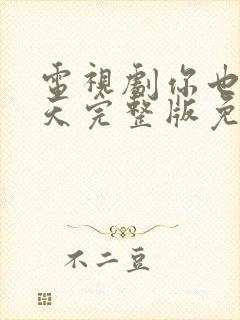 電視劇你也
天完整版免
不二豆